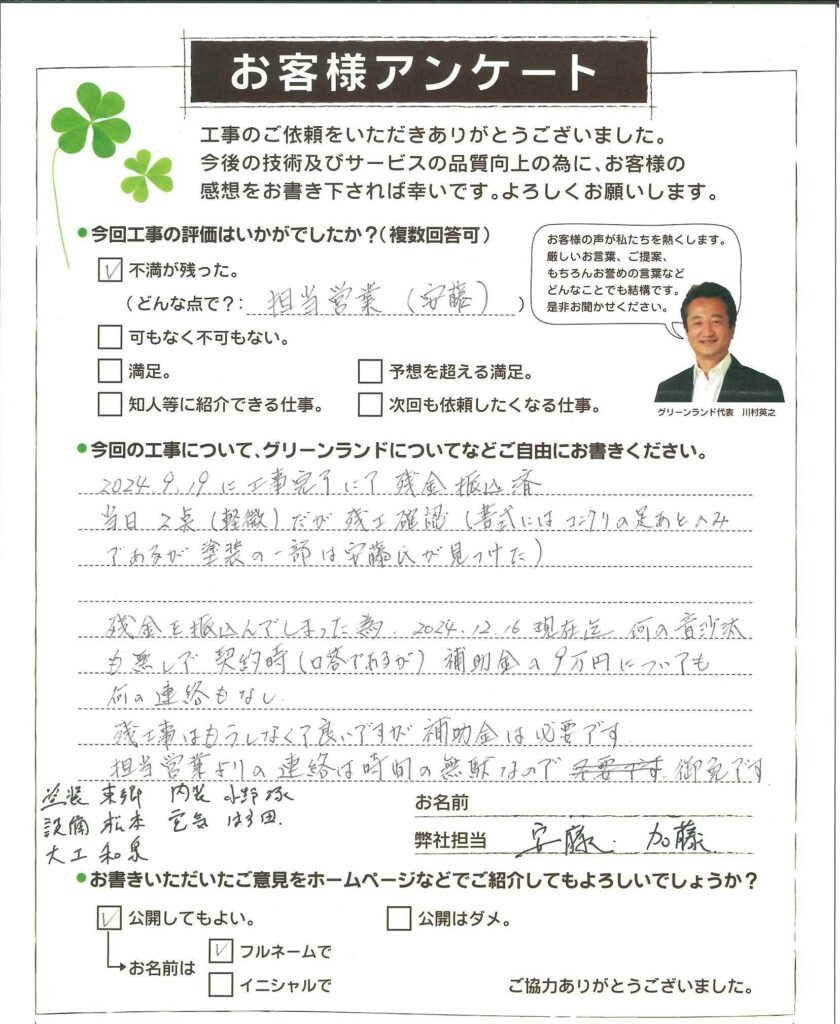 お客様アンケート
工事のご依頼をいただきありがとうございました。
今後の技術及びサービスの品質向上の為に、お客様の
感想をお書き下されば幸いです。よろしくお願いします。
●今回工事の評価はいかがでしたか?(複数回答可)
☑ 不満が残った。
(どんな点で?: 担当営業(安藤) )
□ 可もなく不可もない。
□ 満足。 □ 予想を超える満足。
□ 知人等に紹介できる仕事。 □ 次回も依頼したくなる仕事。
お客様の声が私たちを熱くします。
厳しいお言葉、ご提案、
もちろんお誉めの言葉など
どんなことでも結構です。
是非お聞かせください。
グリーンランド代表 川村英之
●今回の工事について、グリーンランドについてなどご自由にお書きください。
2024.9.19に工事完了にて残金振込済
当日2点(軽微)だが残工確認(書式にはコンクリの足あとのみ
であるが塗装の一部は安藤氏が見つけた)
残金を振込んでしまった為、2024.12.16現在迄何の音沙汰
も無しで契約時(口答であるが)補助金の9万円についても
何の連絡もなし
残工事はもうしなくて良いですが補助金は必要です
担当営業よりの連絡は時間の無駄なので 御免です
塗装 東郷 内装 小野塚
設備 松本 電気 ほり田.
大工 和泉
お名前
弊社担当 安藤. 加藤.
●お書きいただいたご意見をホームページなどでご紹介してもよろしいでしょうか?
☑ 公開してもよい。 □ 公開はダメ。
お名前は ☑ フルネームで
□ イニシャルで
ご協力ありがとうございました。